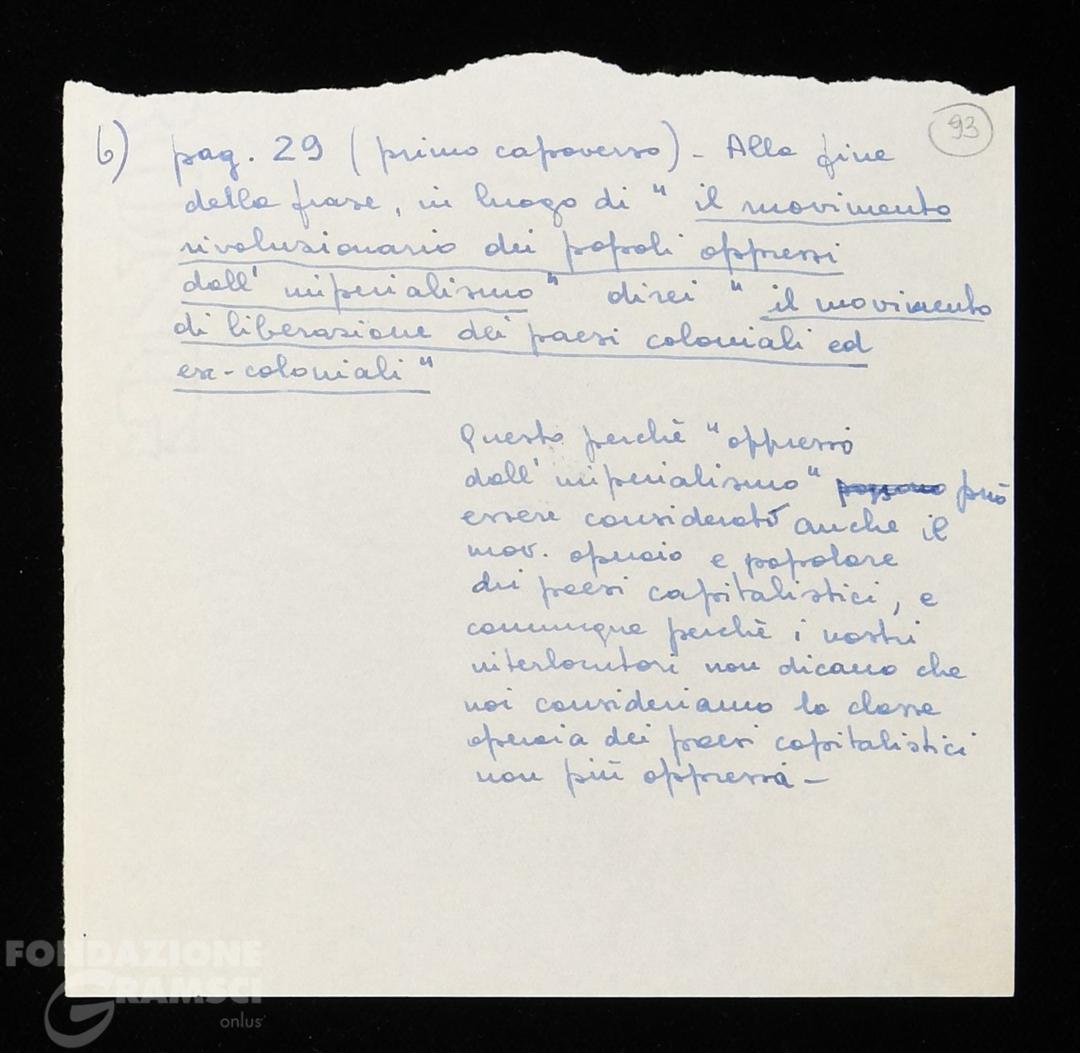 93
6) pag. 29 (primo capoverso) - Alla fine
della frase, in luogo di " il movimento
rivoluzionario dei popoli oppressi
dall' imperialismo" direi " il movimento
di liberazione dei paesi coloniali ed
ex-coloniali"
Questo perchè "oppressi
dall' imperialismo" possono può
essere considerato anche il
mov. operaio e popolare
dei paesi capitalistici, e
comunque perchè i nostri
interlocutori non dicano che
noi consideriamo la classe
operaia dei paesi capitalistici
non più oppressa -
FONDAZIONE
GRAMSCI
onlus